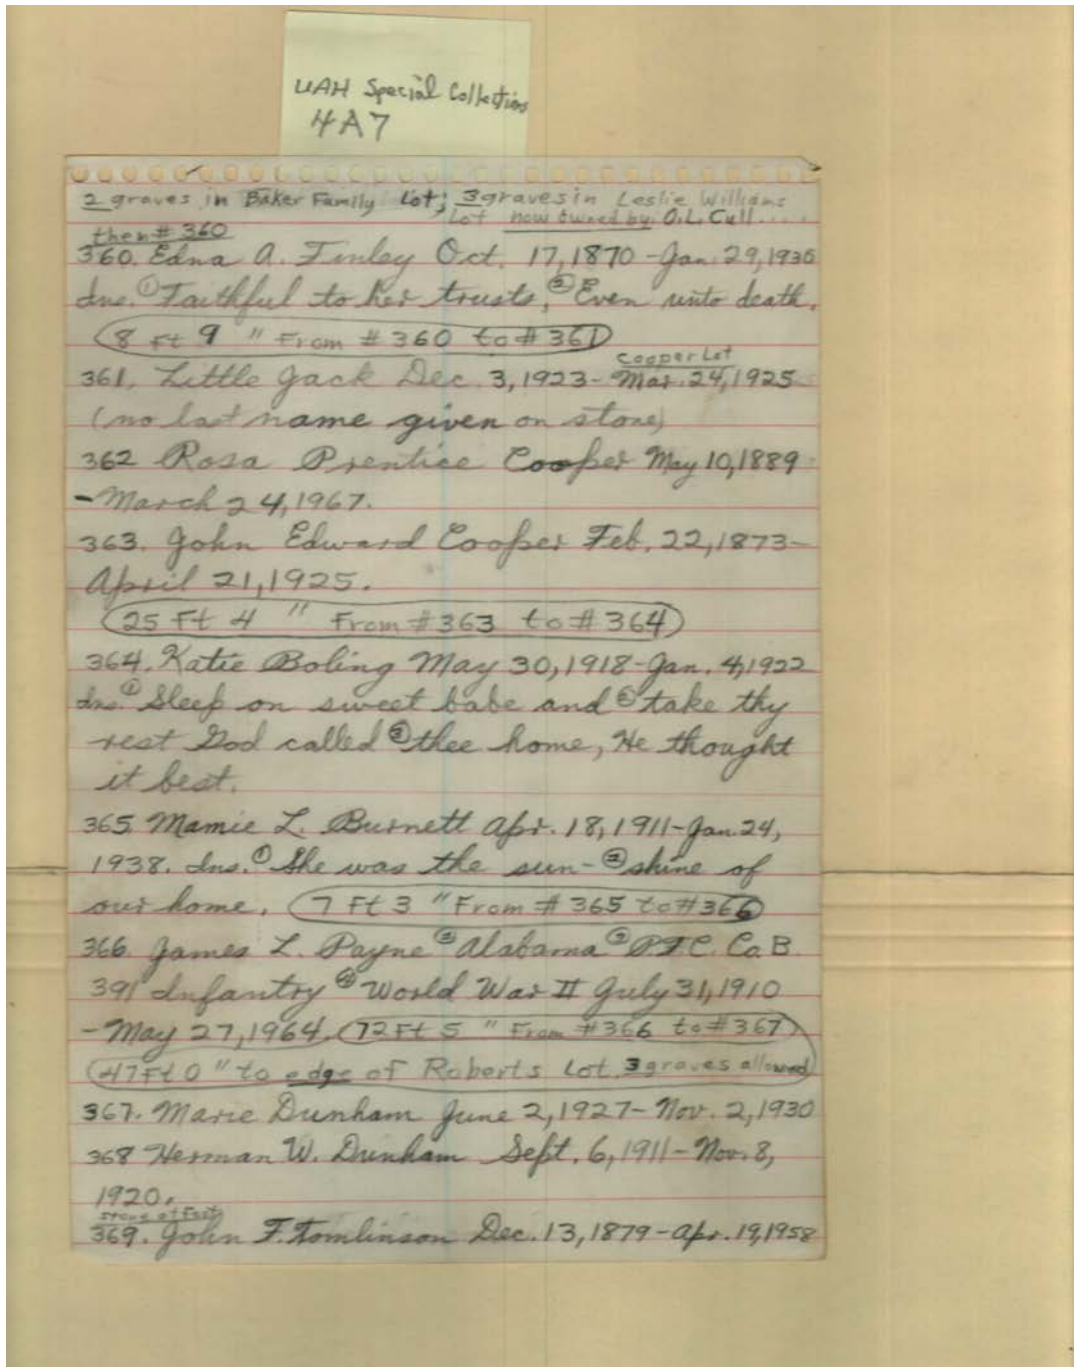 UAH Special Collections
4A7
2 graves in Baker Family Lot; 3 graves in Leslie Williams
Lot now owned by: O.L. Cull....
then # 360
360. Edna A. Finley Oct. 17, 1870 - Jan. 29, 1936
Ins. ① Faithful to her trusts, ② Even unto death.
8 Ft 9 " From # 360 to # 361
Cooper Lot
361. Little Jack Dec. 3, 1923 - Mar. 24, 1925
(no last name given on stone)
362 Rosa Prentice Cooper May 10, 1889
- March 24, 1967.
363. John Edward Cooper Feb. 22, 1873 -
April 21, 1925.
25 Ft 4 " From # 363 to # 364
364. Katie Boling May 30, 1918 - Jan. 4, 1922
Ins. ① Sleep on sweet babe and ② take thy
rest God called ③ thee home, He thought
it best.
365 Mamie L. Burnett Apr. 18, 1911 - Jan. 24,
1938. Ins. ① She was the sun- ② shine of
our home. 7 Ft 3 " From # 365 to # 366
366. James L. Payne ② Alabama ③ P.F.C. Co. B
391 Infantry ④ World War II July 31, 1910
- May 27, 1964. 72 Ft 5 " From # 366 to # 367
47 Ft 0 " to edge of Roberts Lot. 3 graves allowed
367. Marie Dunham June 2, 1927 - Nov. 2, 1930
368 Herman W. Dunham Sept. 6, 1911 - Nov. 8,
1920.
369. John F. Tomlinson Dec. 13, 1879 - Apr. 19, 1958